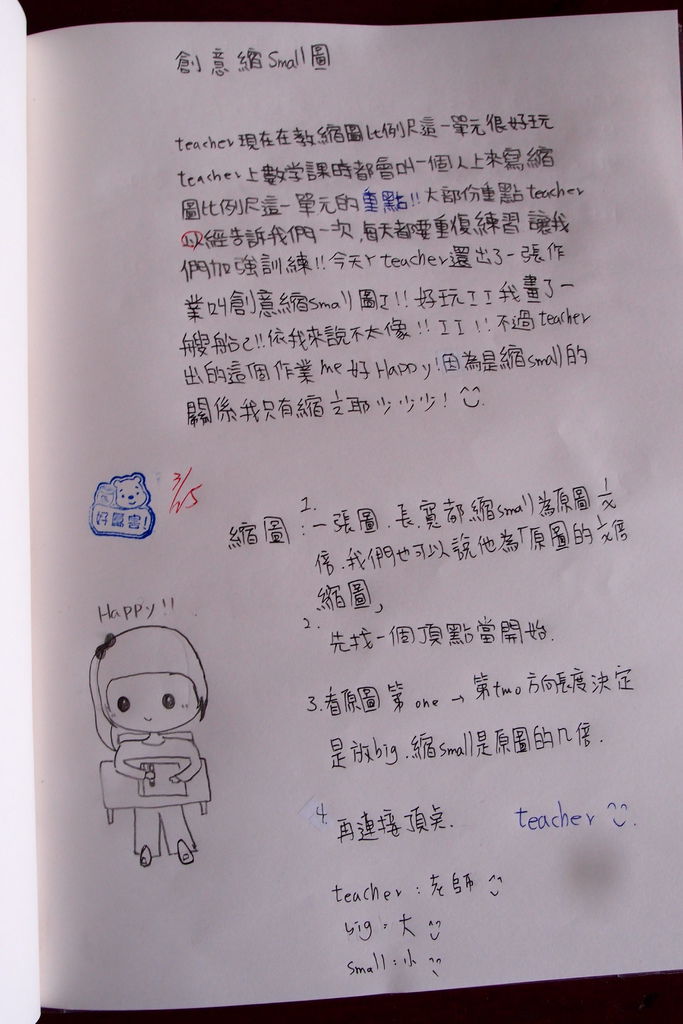 創意縮Small圖
teacher現在在教縮圖比例尺這一單元很好玩
teacher上數学課時都會叫一個人上來寫縮
圖比例尺這一單元的重點!!大部份重點teacher
以經告訴我們一次,每天都要重復練習讓我
們加強訓練!!今天r teacher還出了一張作
業叫創意縮small圖I!!好玩II我畫了一
艘船己!!依我來說不太像!!II!!不過teacher
出的這個作業me好Happy!因為是縮small的
關係我只有縮½耶ㄕㄕㄕ!
3/25
好厲害!
縮圖:1.一張圖.長.寬都縮small為原圖1/x
倍.我們也可以說他為「原圖的1/x倍
縮圖」
Happy!!
2.先找一個頂點當開始.
3.看原圖第one→第two方向長度決定
是放big.縮small是原圖的几倍.
4.再連接頂点. teacher
teacher:老師
big:大
small:小